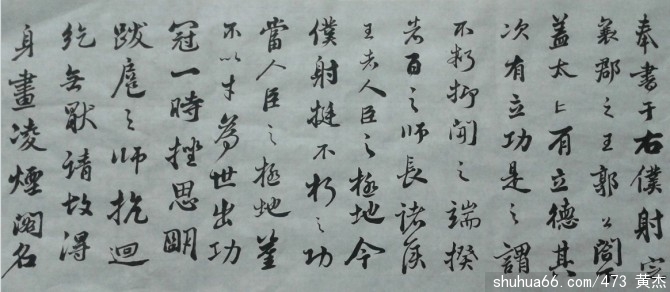 奉書于右僕射定
襄郡之王郭公閣下
蓋太上有立德其
次有立功是之謂
不朽抑聞之端揆
者百之师長諸侯
王者人臣之極地今
僕射挺不朽之功
當人臣之極地豈
不以才為世出功
冠一時挫思明
跋扈之师抗迴
紇無厭請故得
身畫凌煙閣名
shuhua66.com/473 黄杰